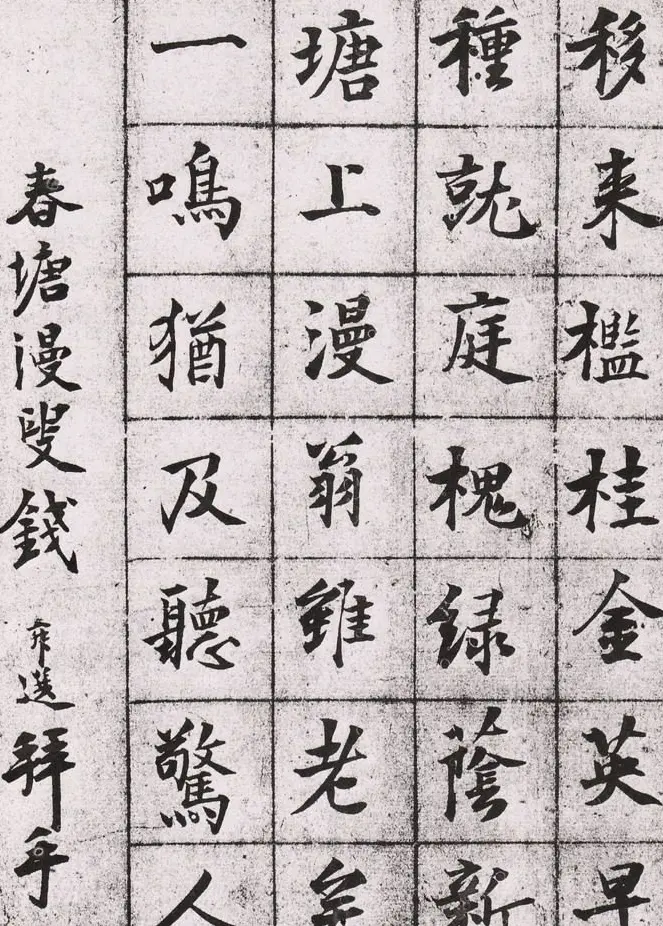 移来檻桂金英早
種就庭槐緑蔭新
塘上漫翁雖老矣
一鳴猶及聽驚人
春塘漫叟錢
選拜手